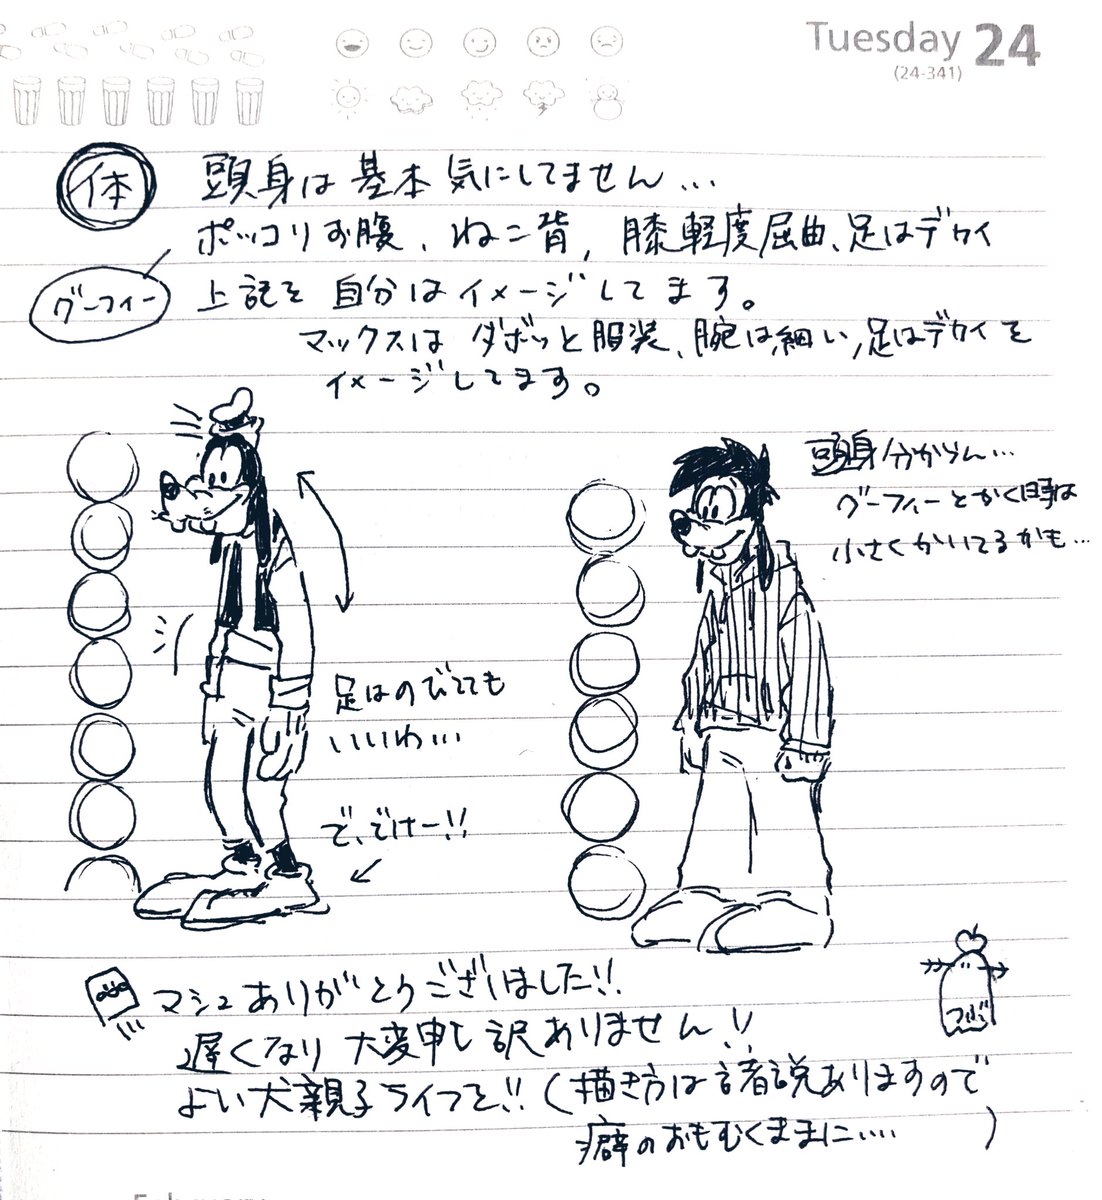 Tuesday 24
(24-341)
体 頭身は基本気にしてません…
ポッコリお腹、ねこ背、膝軽度屈曲、足はデカイ
グーフィー 上記を自分はイメージしてます。
マックスはダボッと服装、腕は細い、足はデカイを
イメージしてます。
頭身分からん…
グーフィーとかく時は
小さくかいてるかも…
足はのびてても
いいわ…
で、でけー!!
マシュありがとうございました!!
遅くなり大変申し訳ありません!!
よい犬親子ライフを!!(描き方は諸説ありますので
癖のおもむくままに…)